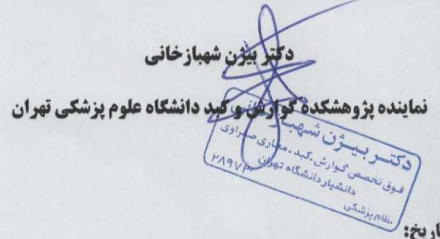 دکتر بیژن شهبازخانی
نماینده پژوهشکده گوارش و کبد دانشگاه علوم پزشکی تهران
دکتر بیژن شهباز
فوق تخصص گوارش، کبد، مجاری صفراوی
دانشیار دانشگاه تهران
نظام پزشکی ۲۸۹۷۰
تاریخ: